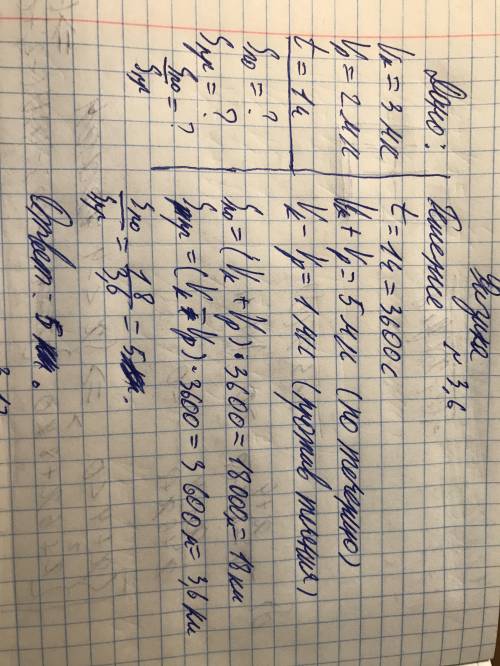 Физика
n 3,6
Дано:
Vк = 3 м/с
Vр = 2 м/с
t = 1ч
Sпо = ?
Sпр = ?
Sпо/Sпр = ?
Решение
t = 1ч = 3600с
Vк + Vр = 5 м/с (по течению)
Vк - Vр = 1 м/с (против течения)
Sпо = (Vк + Vр) · 3600 = 18000м = 18 км
Sпр = (Vк - Vр) · 3600 = 3600м = 3,6 км
Sпо/Sпр = 18/3,6 = 5
Ответ: 5